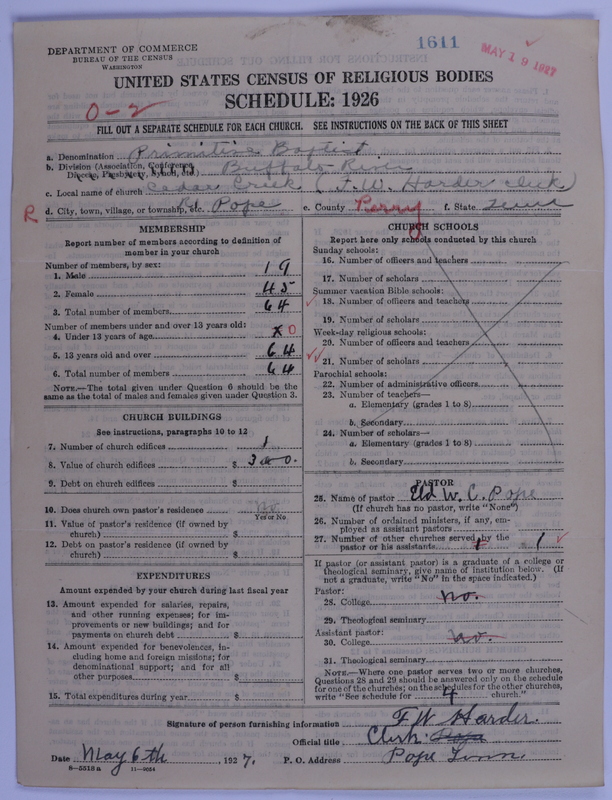 DEPARTMENT OF COMMERCE
BUREAU OF THE CENSUS
WASHINGTON
1611
MAY 19 1927
UNITED STATES CENSUS OF RELIGIOUS BODIES
SCHEDULE: 1926
0-2
FILL OUT A SEPARATE SCHEDULE FOR EACH CHURCH. SEE INSTRUCTIONS ON THE BACK OF THIS SHEET
a. Denomination Primitive Baptist
b. Division (Association, Conference, Diocese, Presbytery, Synod, etc.) Buffalo River
c. Local name of church Cedar Creek (F. W. Harder clerk)
R d. City, town, village, or township, etc. Pope e. County Perry f. State Tenn
MEMBERSHIP
Report number of members according to definition of member in your church
Number of members, by sex:
1. Male 19
2. Female 45
3. Total number of members 64
Number of members under and over 13 years old:
4. Under 13 years of age x 0
5. 13 years old and over 64
6. Total number of members 64
NOTE.—The total given under Question 6 should be the same as the total of males and females given under Question 3.
CHURCH BUILDINGS
See instructions, paragraphs 10 to 12
7. Number of church edifices 1
8. Value of church edifices $ 300.
9. Debt on church edifices $
10. Does church own pastor's residence no
Yes or No
11. Value of pastor's residence (if owned by church) $
12. Debt on pastor's residence (if owned by church) $
EXPENDITURES
Amount expended by your church during last fiscal year
13. Amount expended for salaries, repairs, and other running expenses; for improvements or new buildings; and for payments on church debt $
14. Amount expended for benevolences, including home and foreign missions; for denominational support; and for all other purposes $
15. Total expenditures during year $
CHURCH SCHOOLS
Report here only schools conducted by this church
Sunday schools:
16. Number of officers and teachers
17. Number of scholars
Summer vacation Bible schools:
18. Number of officers and teachers
19. Number of scholars
Week-day religious schools:
20. Number of officers and teachers
21. Number of scholars
Parochial schools:
22. Number of administrative officers
23. Number of teachers—
a. Elementary (grades 1 to 8)
b. Secondary
24. Number of scholars—
a. Elementary (grades 1 to 8)
b. Secondary
PASTOR
25. Name of pastor Eld W. C. Pope
(If church has no pastor, write "None")
26. Number of ordained ministers, if any, employed as assistant pastors
27. Number of other churches served by the pastor or his assistants 4 1
If pastor (or assistant pastor) is a graduate of a college or theological seminary, give name of institution below. (If not a graduate, write "No" in the space indicated.)
Pastor:
28. College no.
29. Theological seminary
Assistant pastor:
30. College no.
31. Theological seminary
NOTE.—Where one pastor serves two or more churches, Questions 28 and 29 should be answered only on the schedule for one of the churches; on the schedules for the other churches, write "See schedule for 4 church."
Signature of person furnishing information F. W. Harder.
Official title Clerk.
Date May 6th, 1927. P. O. Address Pope Tenn.
8—5518 a 11—9054